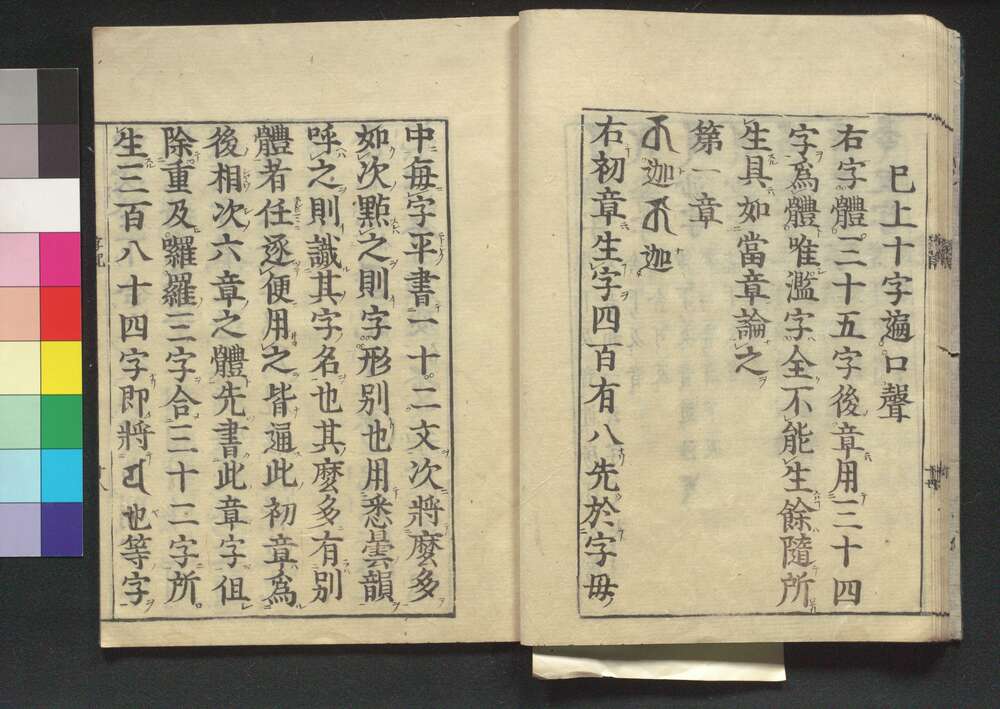 巳上十字遍口聲
右字體三十五字後章用三十四
字爲體唯濫字全不能生餘隨所
生具如當章論之
第一章
𑖎迦𑖎迦
右初章生字四百有八先於字母
中每字平書一十二文次將麼多
如次點之則字形別也用悉曇韻
呼之則識其字名也其麼多有別
體者任逐便用之皆通此初章爲
後相次六章之體先書此章字但
除重及囉羅三字合三十二字所
生三百八十四字即將𑖧也等字